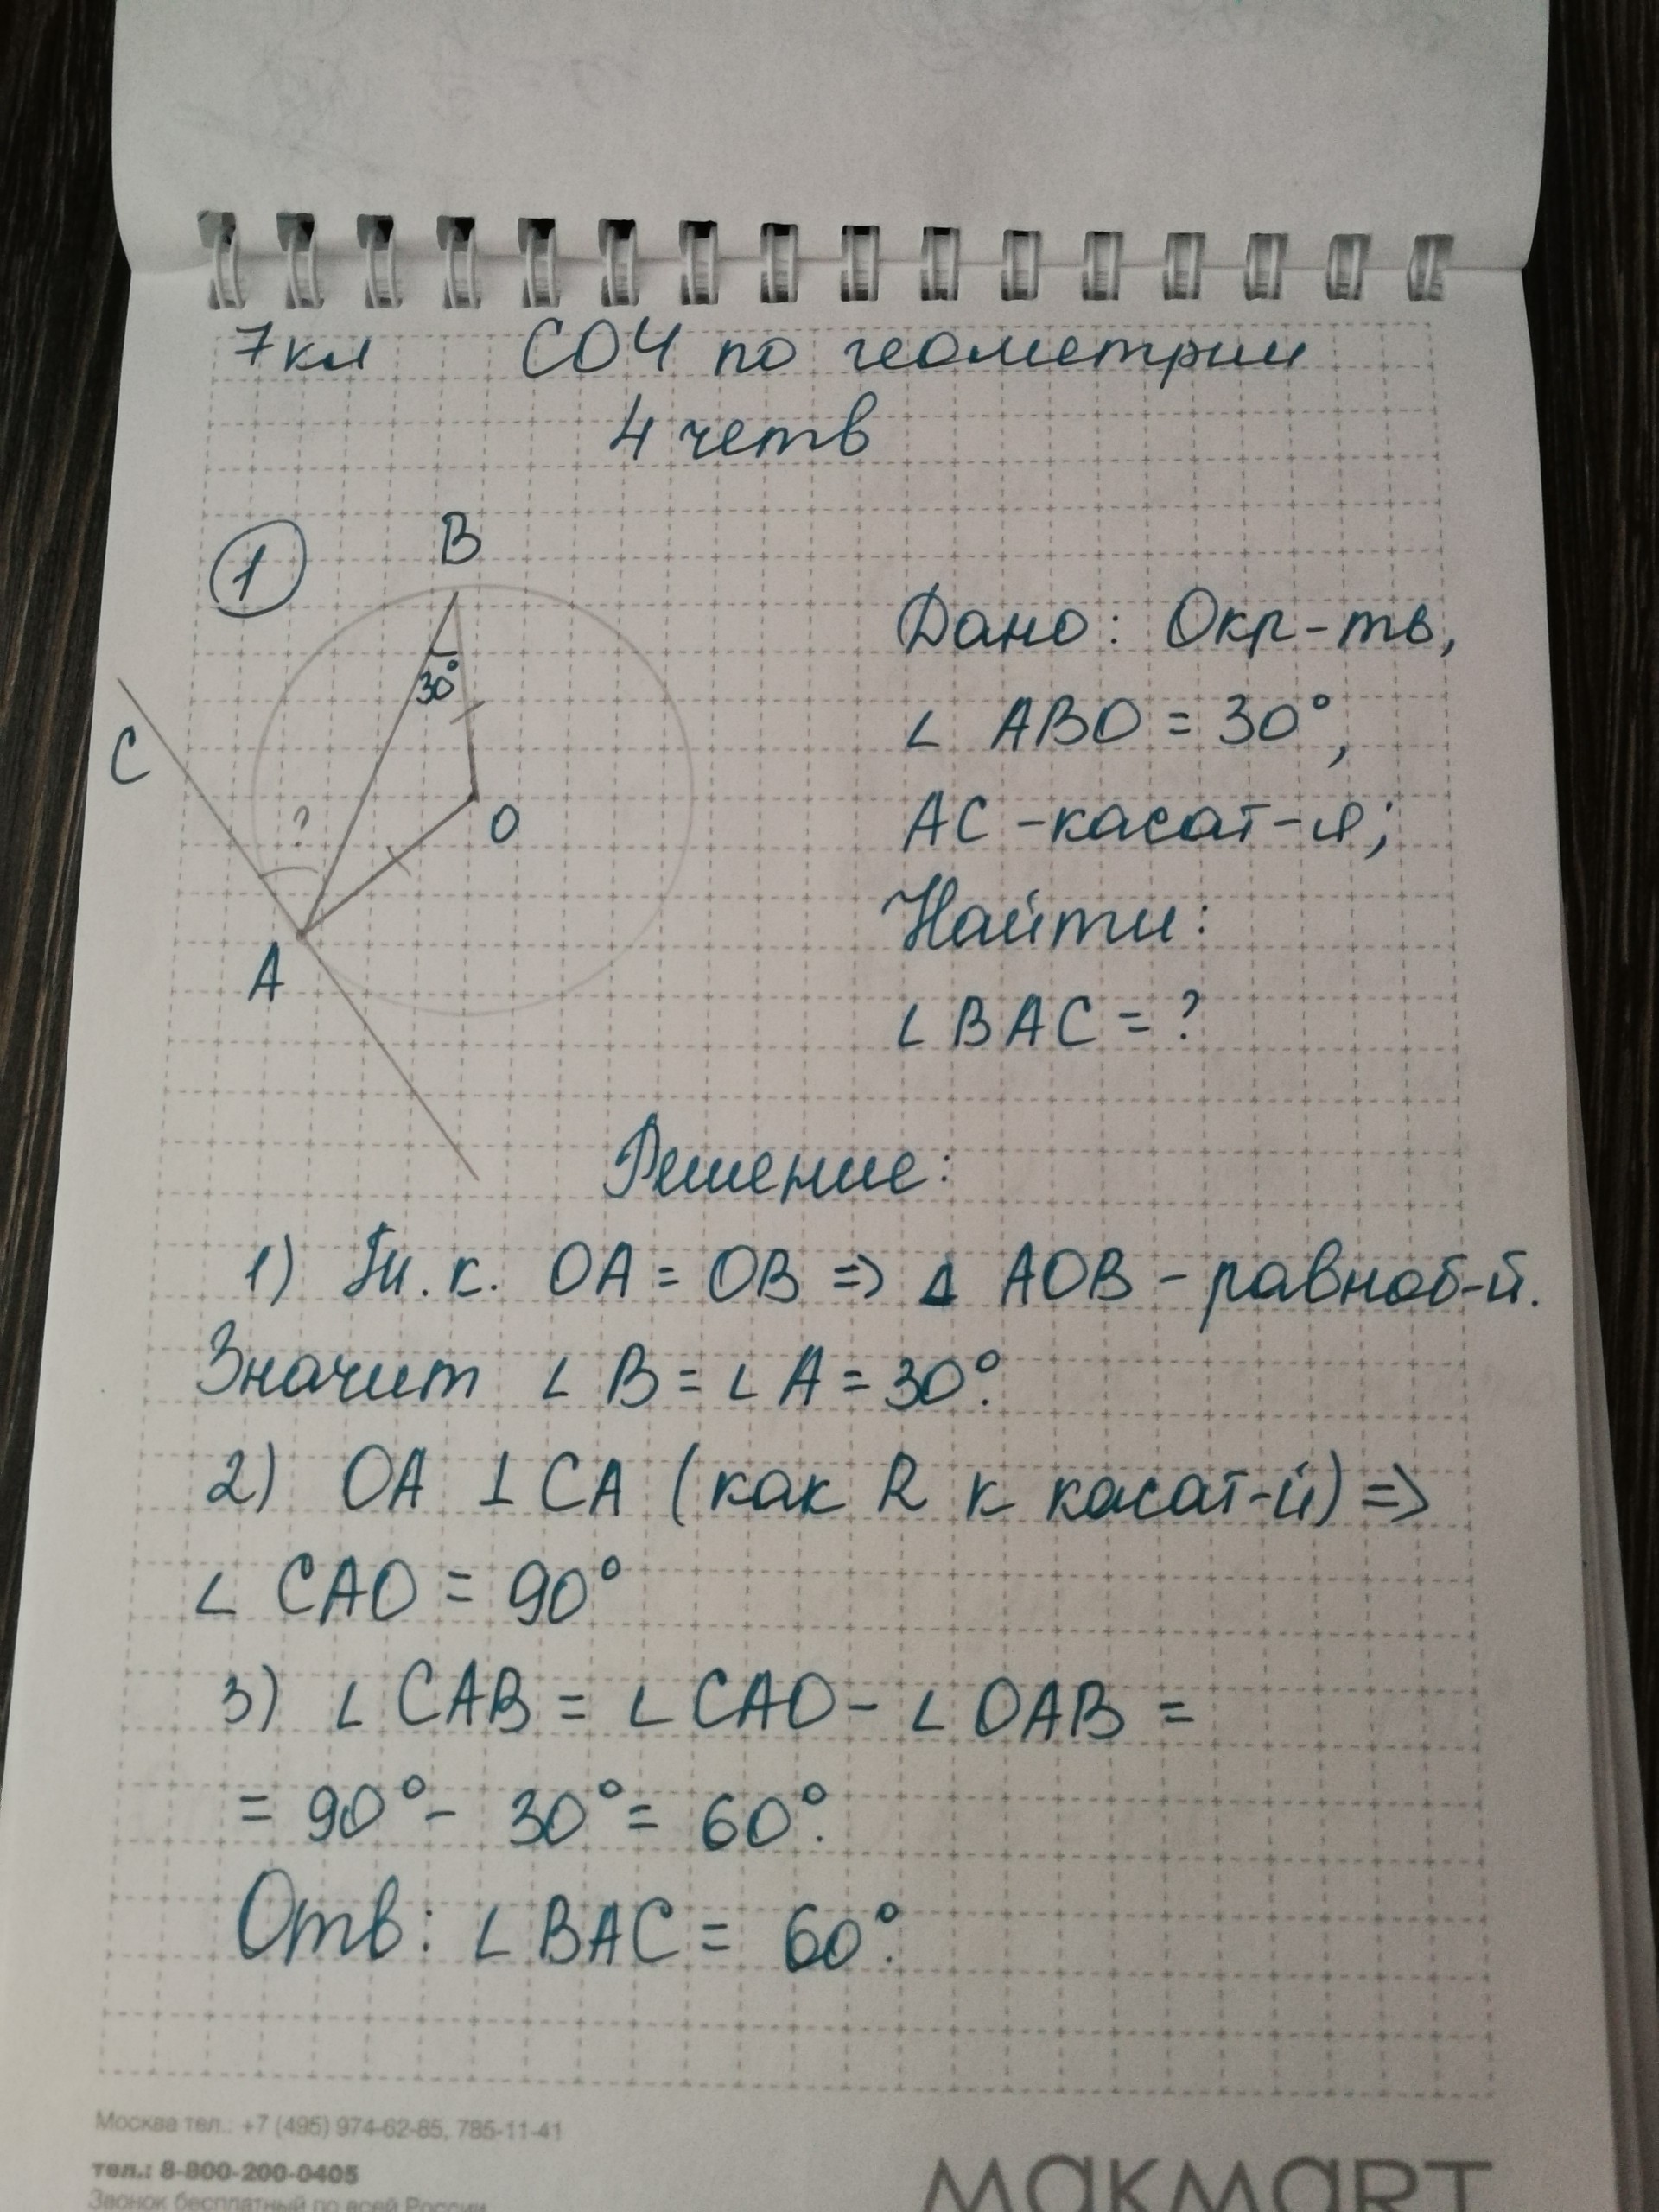 7кл СОЧ по геометрии
4 четв
1
B
30°
C
?
O
A
Дано: Окр-ть,
∠ ABO = 30°,
AC - касат-я;
Найти:
∠ BAC = ?
Решение:
1) Т.к. OA = OB => Δ AOB - равноб-й.
Значит ∠ B = ∠ A = 30°.
2) OA ⊥ CA (как R к касат-й) =>
∠ CAO = 90°
3) ∠ CAB = ∠ CAO - ∠ OAB =
= 90° - 30° = 60°.
Отв: ∠ BAC = 60°.
Москва тел.: +7 (495) 974-62-85, 785-11-41
тел.: 8-800-200-0405
Звонок бесплатный по всей России
MAKMART